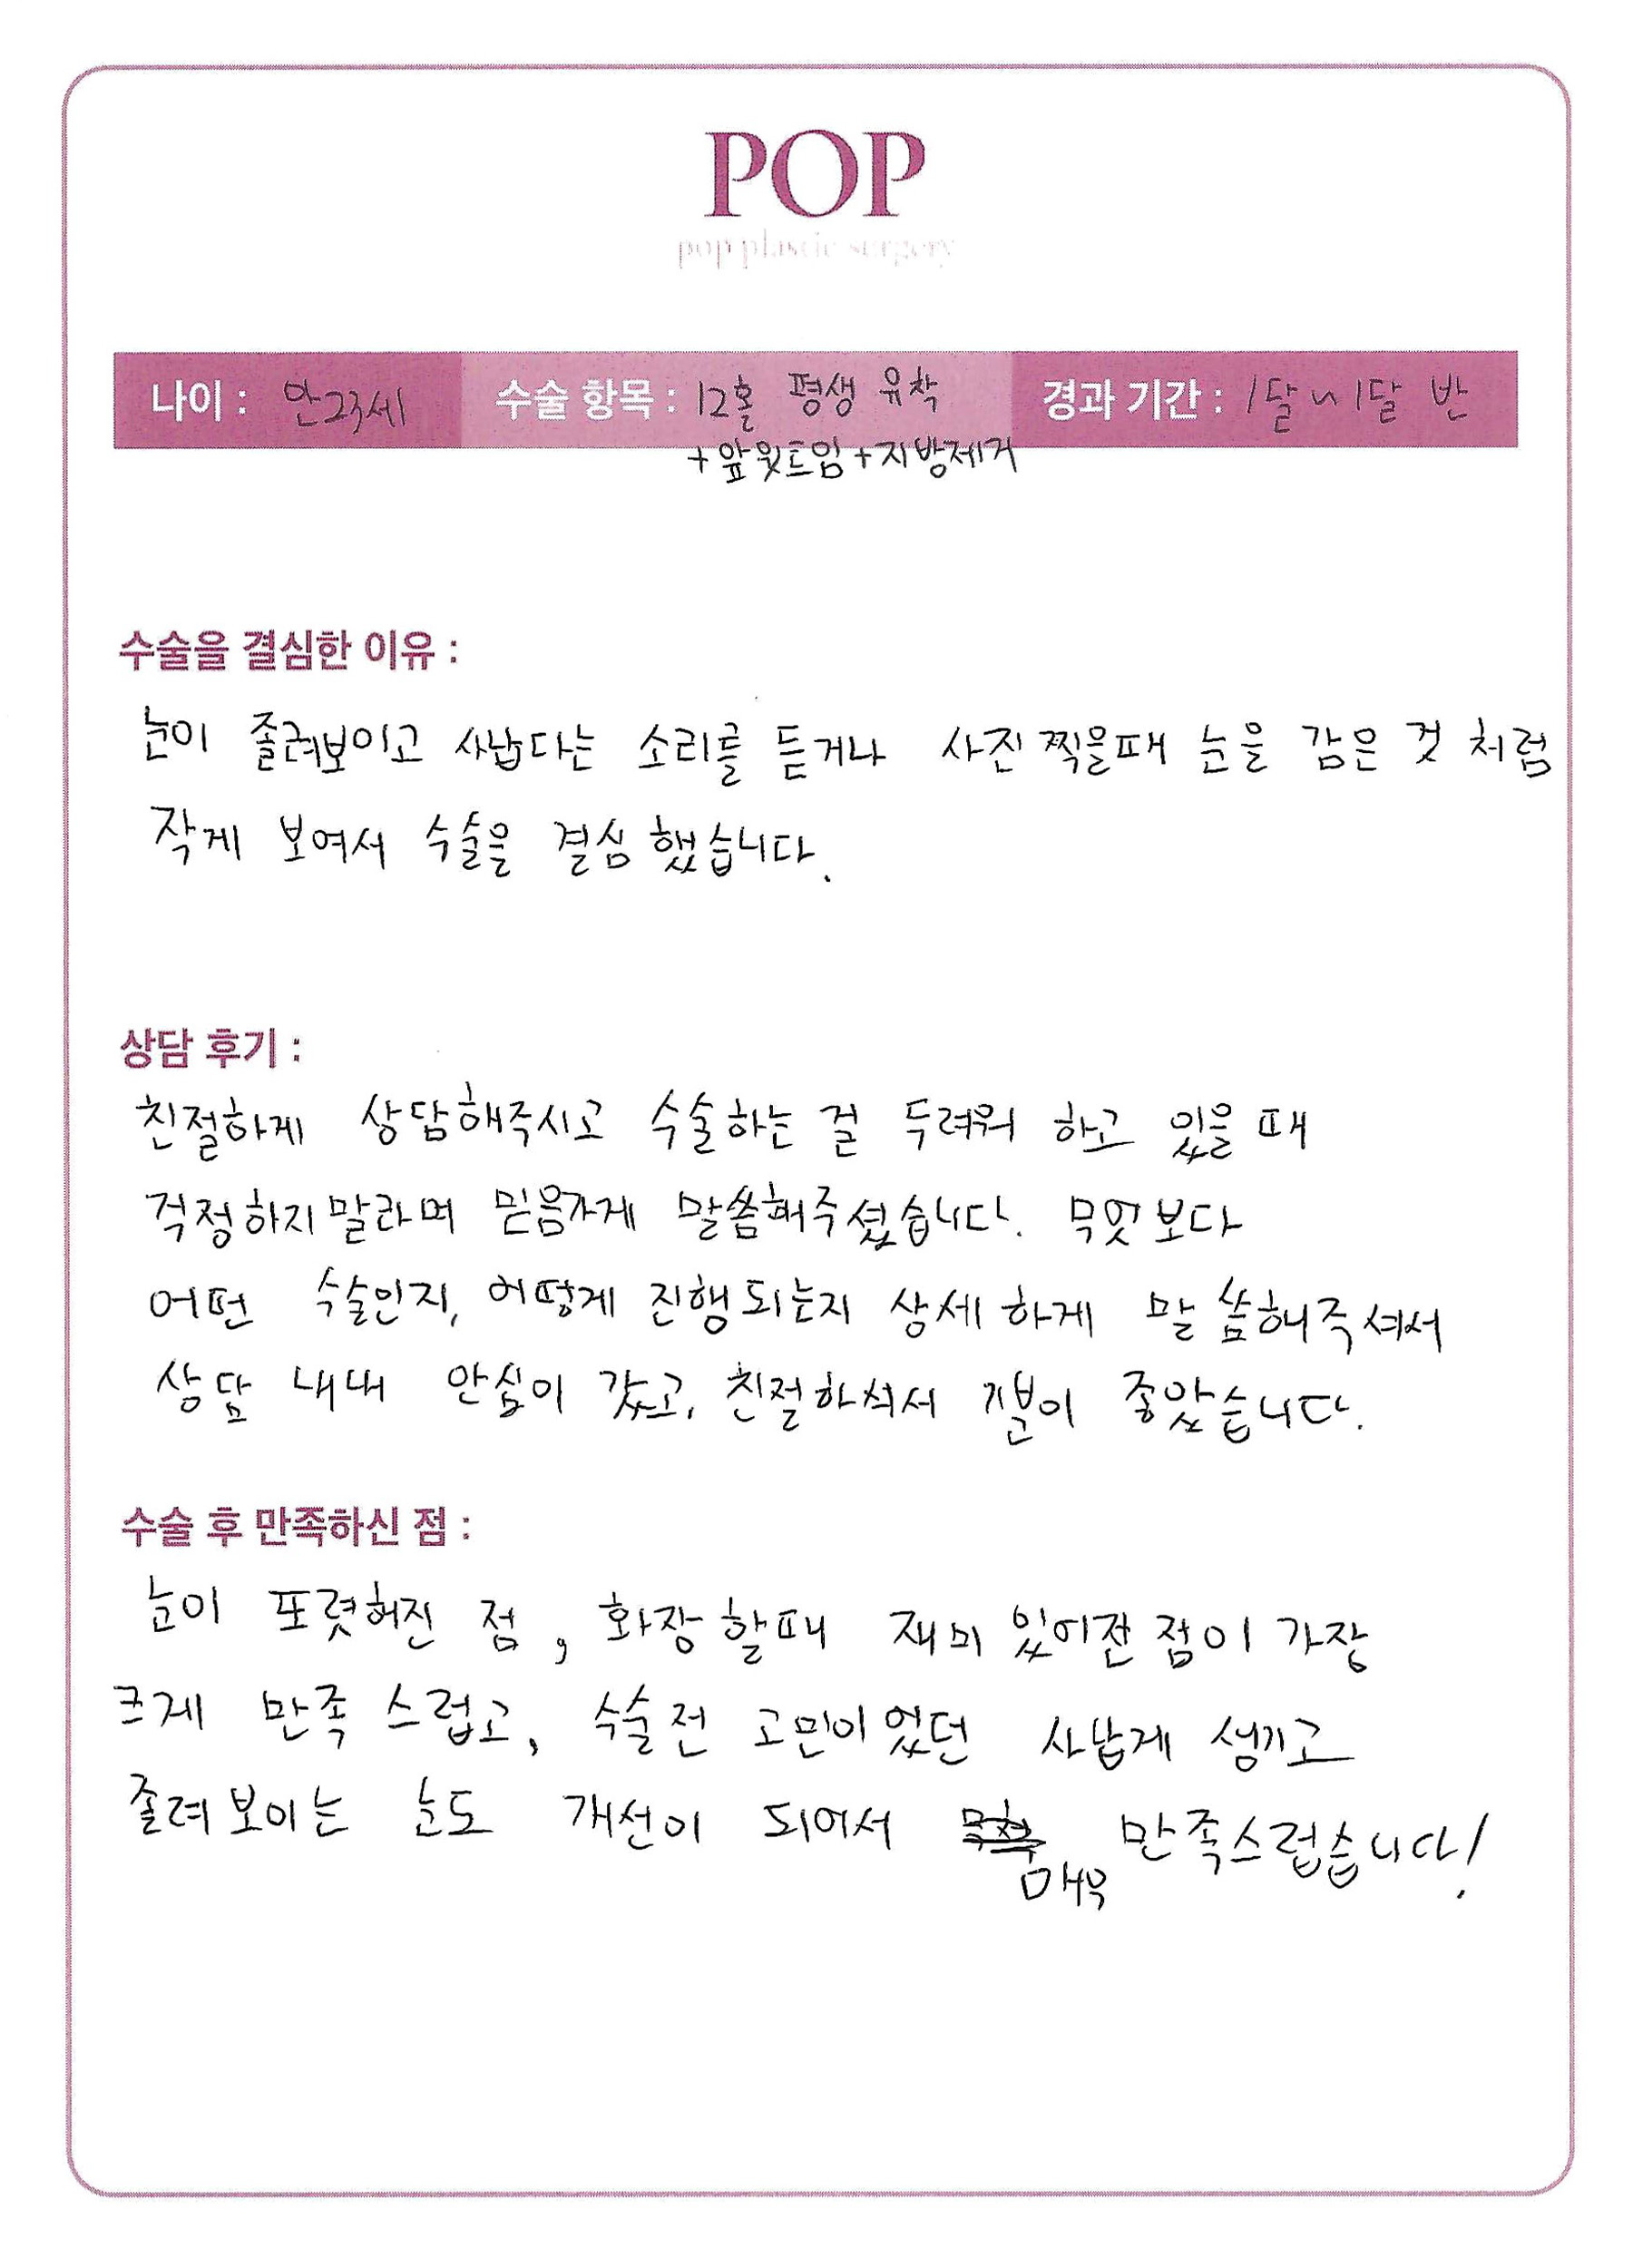 POP
pop plastic surgery
나이 : 만23세 수술 항목 : 12홀 평생 유착 경과 기간 : 1달~1달 반
+앞윗트임+지방제거
수술을 결심한 이유 :
눈이 졸려보이고 사납다는 소리를 듣거나 사진 찍을때 눈을 감은 것 처럼
작게 보여서 수술을 결심했습니다.
상담 후기 :
친절하게 상담해주시고 수술하는 걸 두려워 하고 있을 때
걱정하지말라며 믿음가게 말씀해주셨습니다. 무엇보다
어떤 수술인지, 어떻게 진행되는지 상세하게 말씀해주셔서
상담 내내 안심이 갔고, 친절하셔서 기분이 좋았습니다.
수술 후 만족하신 점 :
눈이 또렷해진 점, 화장할때 재미있어진 점이 가장
크게 만족스럽고, 수술전 고민이었던 사납게 생기고
졸려보이는 눈도 개선이 되어서 매우 만족스럽습니다!